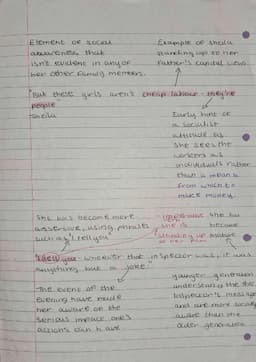 Element of social
awareness that
isn't evident in any of
her other family members.
Example of sheila
standing up to her
Father's capital views
"But these girls aren't cheap labour - they're
people"
- Sheila
Early hint of
a socialist
attitude as
she sees the
workers as
individuals rather
than a means
from which to
make money.
She has become more
assertive, using phrases
such as "I tell you"
she has
become
"I tell you - whoever that inspector was, it was
anything but a joke."
The event of the
evening have made
her aware of the
serious impact one's
actions can have
younger generation
understand the the
inspector's message
and are more socially
aware than the
older generation